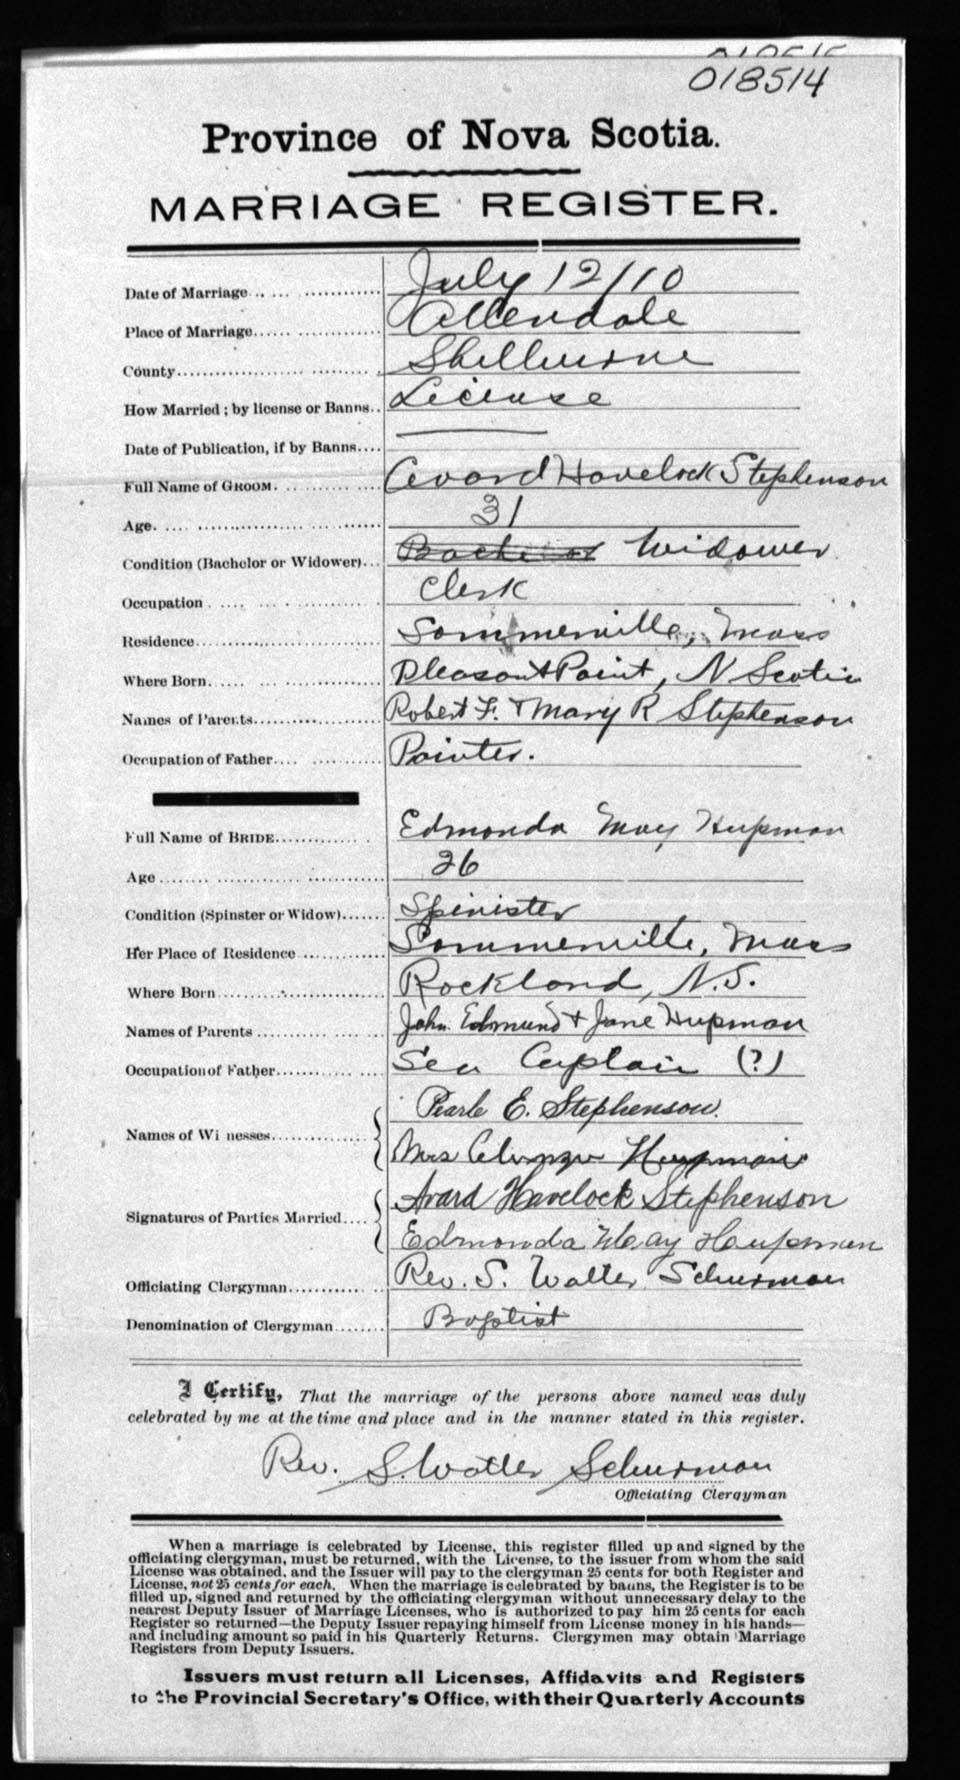 018514
Province of Nova Scotia.
MARRIAGE REGISTER.
Date of Marriage July 12/10
Place of Marriage Allendale
County Shelburne
How Married ; by license or Banns License
Date of Publication, if by Banns
Full Name of GROOM Avard Havelock Stephenson
Age 31
Condition (Bachelor or Widower) Bachelor Widower
Occupation Clerk
Residence Sommerville, Mass
Where Born Pleasant Point, N Scotia
Names of Parents Robert F. + Mary R Stephenson
Occupation of Father Painter.
Full Name of BRIDE Edmonda May Hupman
Age 26
Condition (Spinster or Widow) Spinister
Her Place of Residence Sommerville, Mass
Where Born Rockland, N.S.
Names of Parents John Edmund + Jane Hupman
Occupation of Father Sea Captain (?)
Pearle E. Stephenson.
Names of Witnesses
Mrs Hupman
Avard Havelock Stephenson
Signatures of Parties Married
Edmonda May Hupman
Officiating Clergyman Rev. S. Walter Schurman
Denomination of Clergyman Baptist
I Certify, That the marriage of the persons above named was duly
celebrated by me at the time and place and in the manner stated in this register.
Rev. S. Walter Schurman
Officiating Clergyman
When a marriage is celebrated by License, this register filled up and signed by the
officiating clergyman, must be returned, with the License, to the issuer from whom the said
License was obtained, and the Issuer will pay to the clergyman 25 cents for both Register and
License, not 25 cents for each. When the marriage is celebrated by banns, the Register is to be
filled up, signed and returned by the officiating clergyman without unnecessary delay to the
nearest Deputy Issuer of Marriage Licenses, who is authorized to pay him 25 cents for each
Register so returned—the Deputy Issuer repaying himself from License money in his hands—
and including amount so paid in his Quarterly Returns. Clergymen may obtain Marriage
Registers from Deputy Issuers.
Issuers must return all Licenses, Affidavits and Registers
to the Provincial Secretary's Office, with their Quarterly Accounts